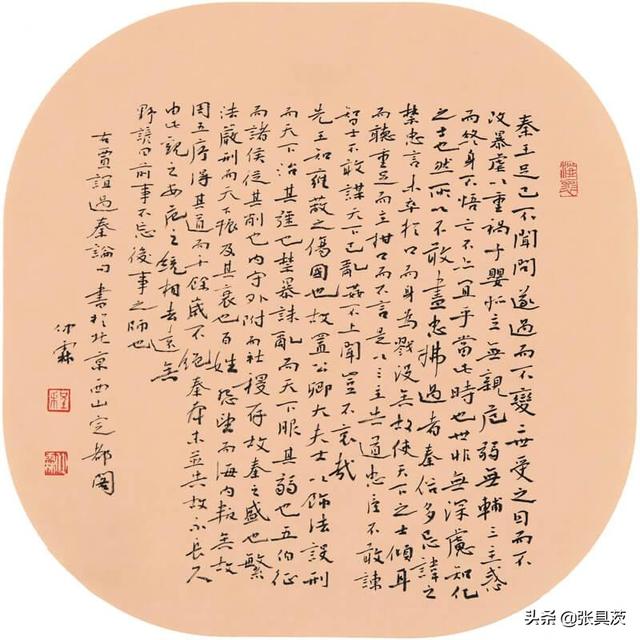 秦王足己不聞問遂過而不變二世受之因而不
改暴虐以重禍子嬰孤立無親危弱無輔三主惑
而終身不悟亡不亦宜乎當此時也世非無深慮知化
之士也然所以不敢盡忠拂過者秦俗多忌諱之
禁忠言未卒於口而身為戮沒無故使天下之士傾耳
而聽重足而立拑口而不言是以三主失道忠臣不敢諫
智士不敢謀天下已亂姦不上聞豈不哀哉
先王知雍蔽之傷國也故置公卿大夫士以飾法設刑
而天下治其強也禁暴誅亂而天下服其弱也五伯征
而諸侯從其削也內守外附而社稷存故秦之盛也繁
法嚴刑而天下振及其衰也百姓怨望而海內叛矣故
周五序得其道而千餘歲不絕秦本末並失故不長久
由此觀之安危之統相去遠矣
野諺曰前事不忘後事之師也
右賈誼過秦論句書於北京西山定都閣
仲霖
头条 @张具茨